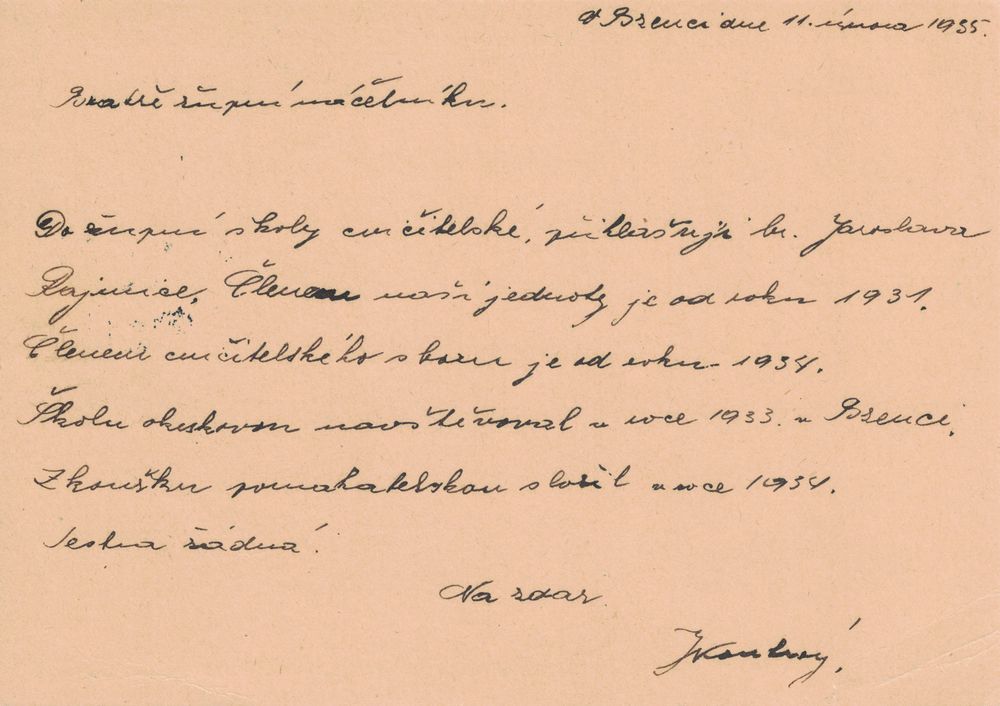 V Bzenci dne 11. února 1935.
Bratře župní náčelníku.
Do župní školy cvičitelské, přihlašuji br. Jaroslava
Rajnice. Členem naší jednoty je od roku 1931.
Členem cvičitelského sboru je od roku 1934.
Školu okrskovou navštěvoval v roce 1933. v Bzenci.
Zkoušku pomahatelskou složil v roce 1934.
žádná.
Na zdar